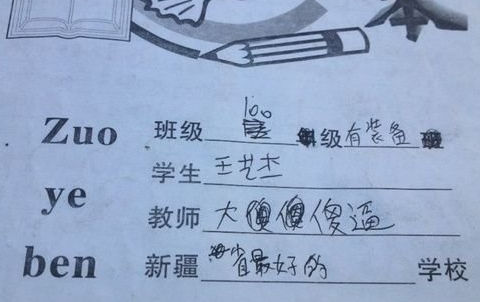 本
Zuo 班级 100 级有装备
学生 王艺杰
ye
教师 大傻逼
ben 新疆 省最好的 学校